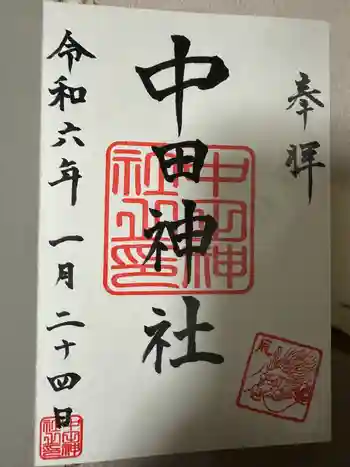 奉拝
中田神社
中田神社之印
令和六年一月二十四日
辰